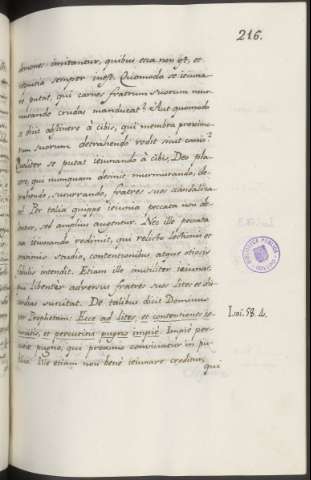 216.
demones imitantur, quibus esca non est, et
nequitia semper inest. Quomodo se ieiuna-
re putat, qui carnes fratrum suorum mur-
murando crudas manducat? Aut quomodo
se dicit abstinere à cibis, qui membra proximo-
rum suorum detrahendo rodit sicut canis?
Qualiter se putat ieiunando à cibis Deo pla-
cere, qui nunquam desinit murmurando, de-
trahendo, susurrando, fratres suos scandaliza-
re? Per talia quippe ieiunia peccata non de-
lentur, sed amplius augentur. Nec ille peccata
sua ieiunando redimit, qui relicto lectionis et
orationis studio, contentionibus atque otiosis
fabulis intendit. Etiam ille inutiliter ieiunat
qui libenter adversus fratres suos lites et dis-
cordias suscitat. De talibus dicit Dominus
per Prophetam: Ecce ad lites, et contentiones ie-
iunatis, et percutitis pugno impie. Impie per-
cutit pugno, qui proximo conviciatur in pu-
blico. Ille etiam non bene ieiunare creditur,
qui
Isai. 58. 4.